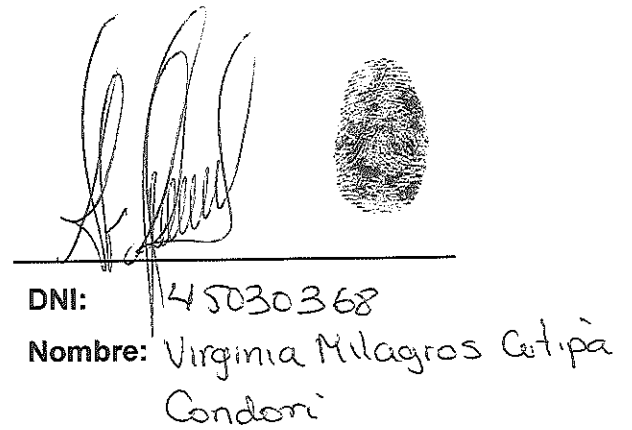 DNI: 45030368
Nombre: Virginia Milagros Cutipà
Condori